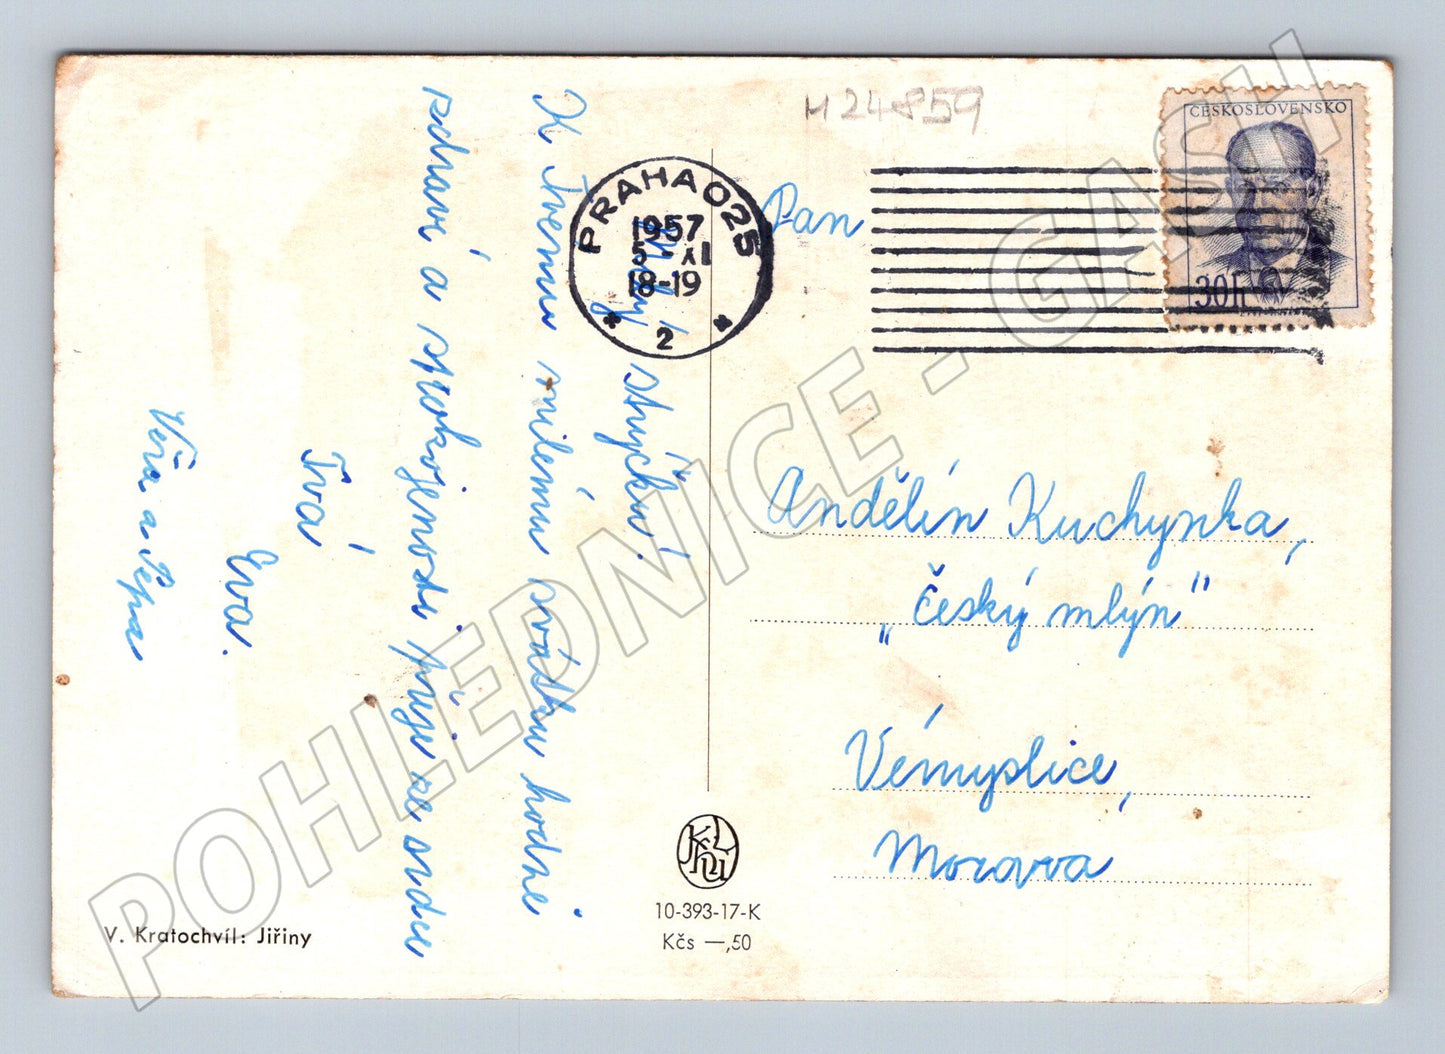 M 24859
ČESKOSLOVENSKO
30h
PRAHA 025
1957
5.-XI
18-19
* 2 *
Milý strýčku!
K Tvému milému svátku hodně
zdraví a spokojenosti přeje ze srdce
Tvá
Eva.
Věra a Pepa
Pan
Andělín Kuchynka,
„Český mlýn"
Vémyslice,
Morava
10-393-17-K
Kčs —,50
V. Kratochvíl: Jiřiny
POHLEDNICE - GASH